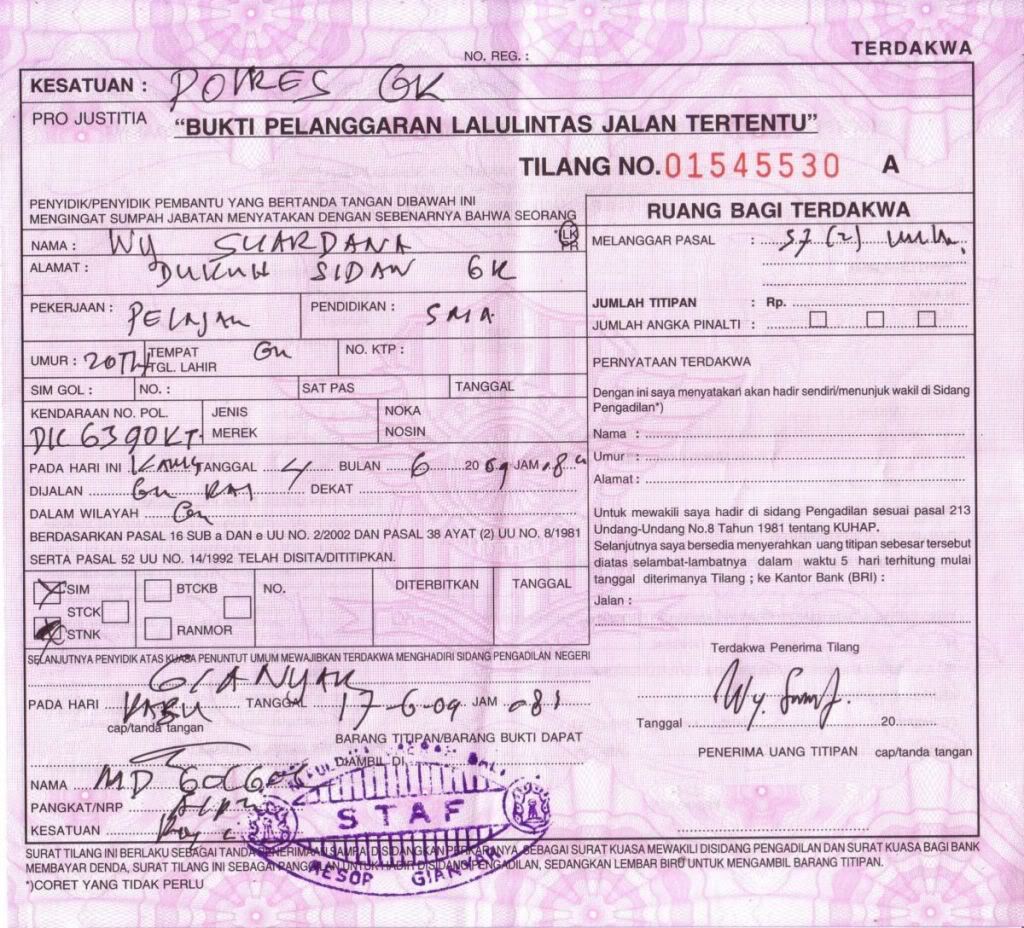 TERDAKWA
NO. REG. :
KESATUAN : POLRES GK
PRO JUSTITIA
"BUKTI PELANGGARAN LALULINTAS JALAN TERTENTU"
TILANG NO. 01545530 A
PENYIDIK/PENYIDIK PEMBANTU YANG BERTANDA TANGAN DIBAWAH INI
MENGINGAT SUMPAH JABATAN MENYATAKAN DENGAN SEBENARNYA BAHWA SEORANG
NAMA : WY SUARDANA *LK
PR
ALAMAT : DUKUH SIDAN GK
PEKERJAAN : PELAJAR PENDIDIKAN : SMA
UMUR : 20 TH TEMPAT
TGL. LAHIR
NO. KTP :
SIM GOL : NO. : SAT PAS TANGGAL
KENDARAAN NO. POL. JENIS NOKA
DK 6390KT. MEREK NOSIN
PADA HARI INI TANGGAL 4 BULAN 6 2009 JAM
DIJALAN DEKAT
DALAM WILAYAH
BERDASARKAN PASAL 16 SUB a DAN e UU NO. 2/2002 DAN PASAL 38 AYAT (2) UU NO. 8/1981
SERTA PASAL 52 UU NO. 14/1992 TELAH DISITA/DITITIPKAN.
SIM BTCKB NO. DITERBITKAN TANGGAL
STCK
STNK RANMOR
SELANJUTNYA PENYIDIK ATAS KUASA PENUNTUT UMUM MEWAJIBKAN TERDAKWA MENGHADIRI SIDANG PENGADILAN NEGERI
GIANYAR
PADA HARI RABU TANGGAL 17-6-09 JAM
cap/tanda tangan
BARANG TITIPAN/BARANG BUKTI DAPAT
DIAMBIL DI
NAMA MD
PANGKAT/NRP
KESATUAN
STAF
RESOR GIANYAR
RUANG BAGI TERDAKWA
MELANGGAR PASAL : 57 (2)
JUMLAH TITIPAN : Rp.
JUMLAH ANGKA PINALTI :
PERNYATAAN TERDAKWA
Dengan ini saya menyatakan akan hadir sendiri/menunjuk wakil di Sidang
Pengadilan*)
Nama :
Umur :
Alamat :
Untuk mewakili saya hadir di sidang Pengadilan sesuai pasal 213
Undang-Undang No.8 Tahun 1981 tentang KUHAP.
Selanjutnya saya bersedia menyerahkan uang titipan sebesar tersebut
diatas selambat-lambatnya dalam waktu 5 hari terhitung mulai
tanggal diterimanya Tilang ; ke Kantor Bank (BRI) :
Jalan :
Terdakwa Penerima Tilang
Tanggal 20
PENERIMA UANG TITIPAN cap/tanda tangan
SURAT TILANG INI BERLAKU SEBAGAI TANDA PENERIMAAN SAMPAI DISIDANGKAN PERKARANYA, SEBAGAI SURAT KUASA MEWAKILI DISIDANG PENGADILAN DAN SURAT KUASA BAGI BANK
MEMBAYAR DENDA, SURAT TILANG INI SEBAGAI PANGGILAN UNTUK HADIR DISIDANG PENGADILAN, SEDANGKAN LEMBAR BIRU UNTUK MENGAMBIL BARANG TITIPAN.
*)CORET YANG TIDAK PERLU